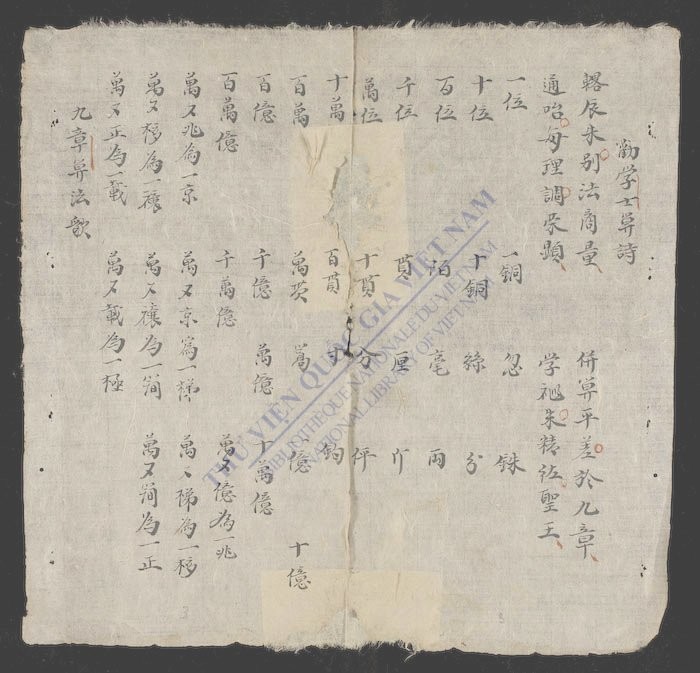 勸学士算詩
輅辰朱别法商量 併算平差於九章
通 每理調 顕 学 朱 圣王
一位 一銅 忽 銖
十位 十銅 絲 分
百位 陌 毫 両
千位 貫 厘 斤
萬位 十貫 分 秤
十萬 百貫 寸 鈞
百萬 萬貫 萬 億 十億
百億 千億 萬億 十萬億
百萬億 千萬億 萬又億為一兆
萬又兆為一京 萬又京為一梯 萬又梯為一移
萬又移為一穰 萬又穰為一簡 萬又簡為一正
萬又正為一載 萬又載為一極
九章算法歌
THƯ VIỆN QUỐC GIA VIỆT NAM
BIBLIOTHÈQUE NATIONALE DU VIETNAM
NATIONAL LIBRARY OF VIETNAM
3